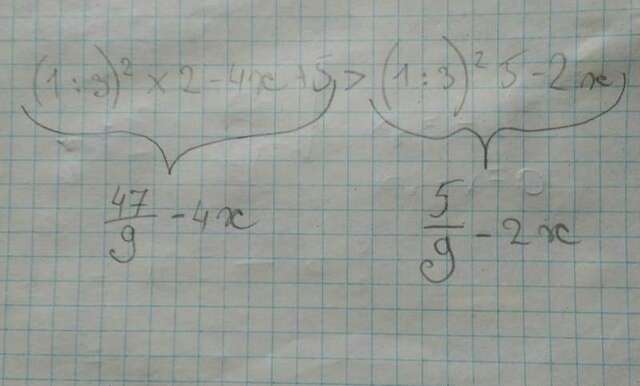 (1 : 3)² × 2 - 4x + 5 > (1 : 3)² 5 - 2x
47/9 - 4x 5/9 - 2x